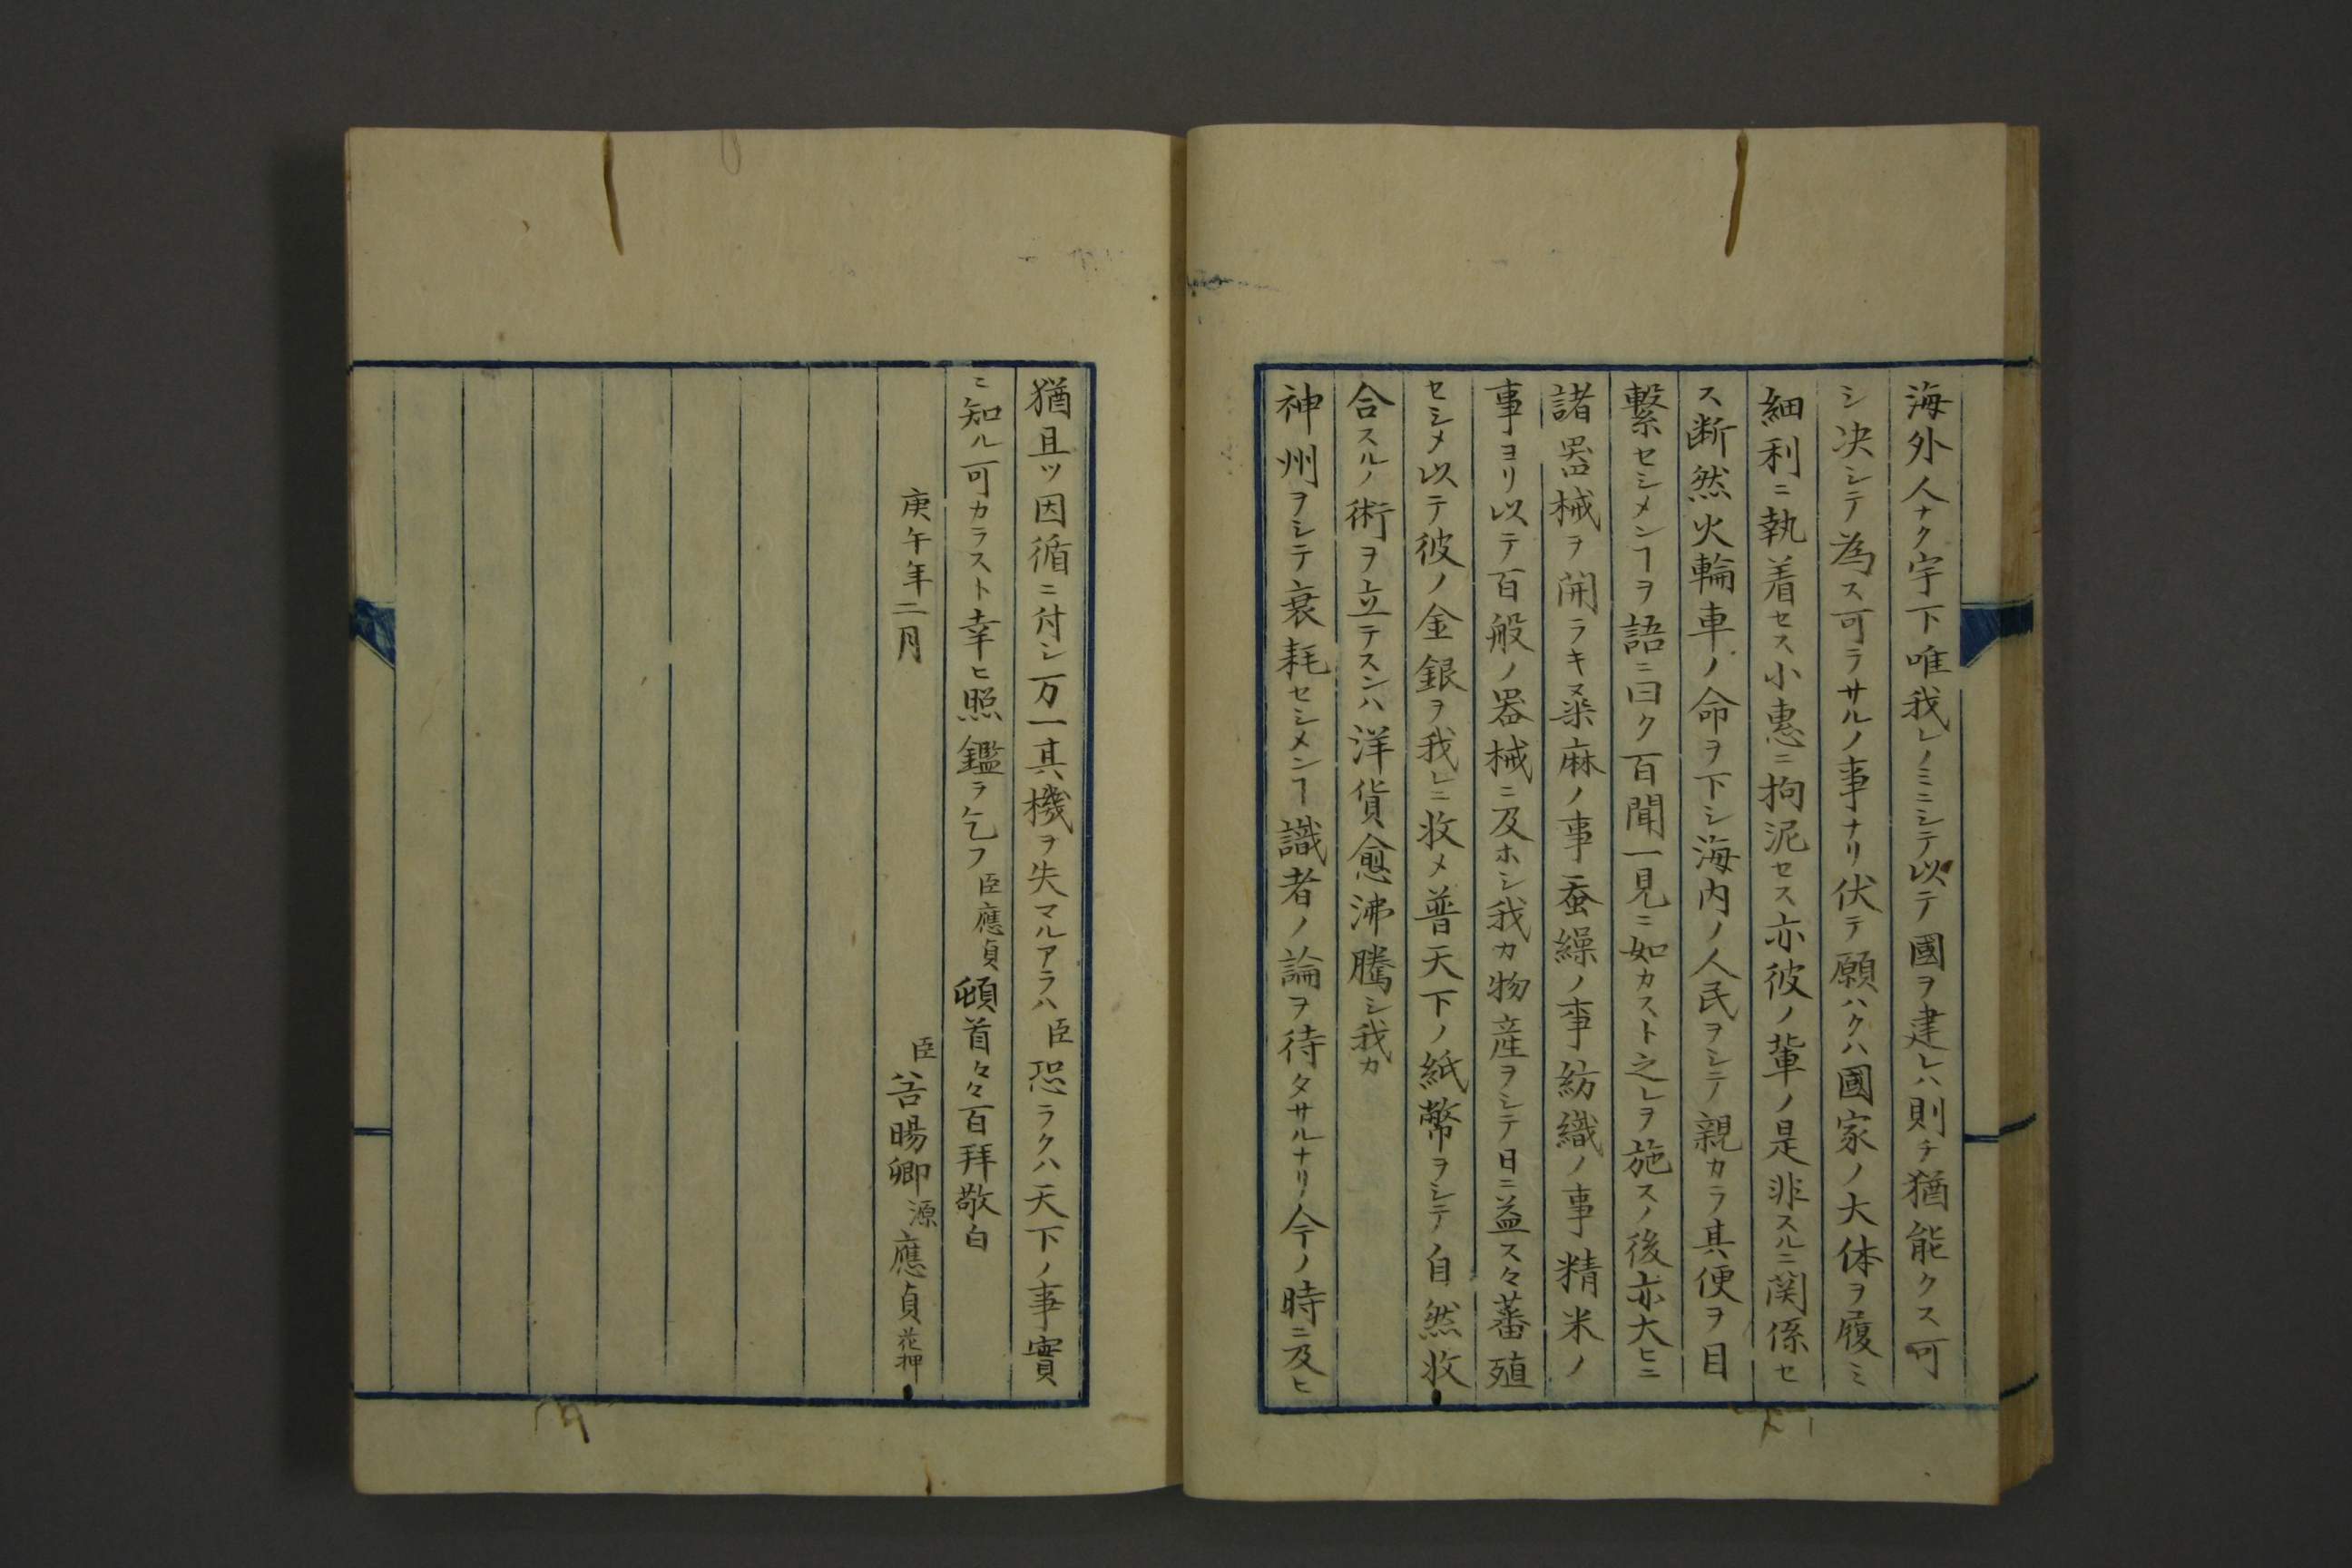 海外人ナク宇下唯我レノミニシテ以テ國ヲ建レハ則チ猶能クス可
シ决シテ為ス可ラサルノ事ナリ伏テ願ハクハ國家ノ大体ヲ履ミ
細利ニ執着セス小惠ニ拘泥セス亦彼ノ輩ノ是非スルニ関係セ
ス断然火輪車ノ命ヲ下シ海内ノ人民ヲシテ親カラ其便ヲ目
繋セシメンヿヲ語ニ曰ク百聞一見ニ如カスト之レヲ施スノ後亦大ヒニ
諸器械ヲ開ラキ桒麻ノ事蚕繰ノ事紡織ノ事精米ノ
事ヨリ以テ百般ノ器械ニ及ホシ我カ物産ヲシテ日ニ益ス々蕃殖
セシメ以テ彼ノ金銀ヲ我レニ收メ普天下ノ紙幣ヲシテ自然收
合スルノ術ヲ立テスンハ洋貨愈沸騰シ我カ
神州ヲシテ衰耗セシメンヿ識者ノ論ヲ待タサルナリ今ノ時ニ及ヒ
猶且ツ因循ニ付シ万一其機ヲ失マルアラハ臣恐ラクハ天下ノ事實
ニ知ル可カラスト幸ヒ照鑑ヲ乞フ臣應貞頓首々々百拜敬白
庚午年二月
臣谷暘卿源應貞花押